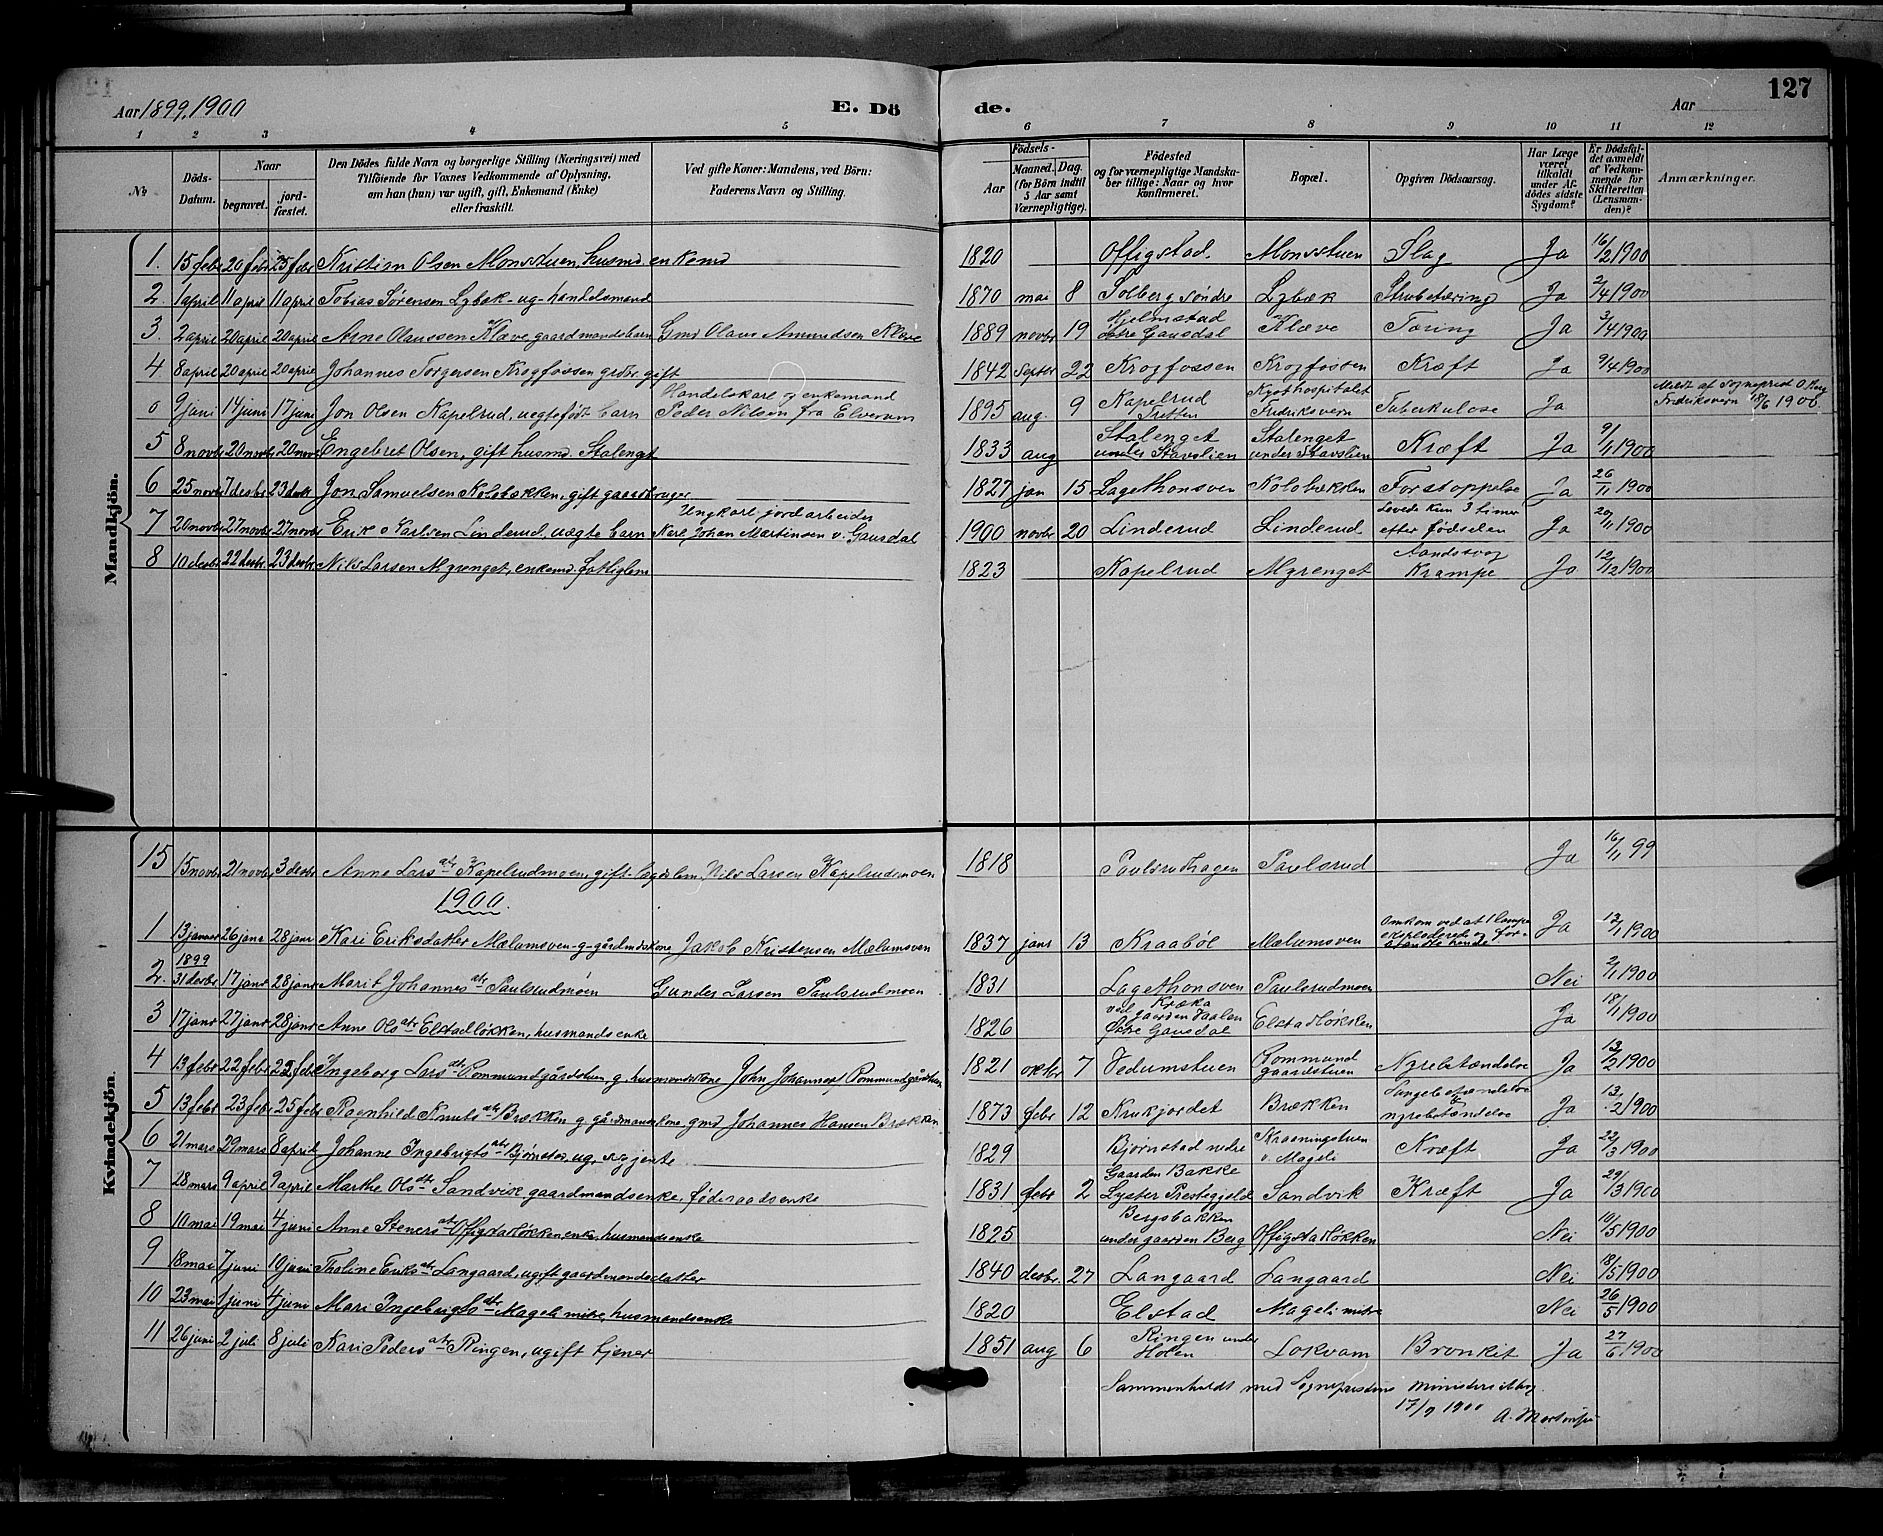 Aar 1899, 1900 E. Dö de. Aar 127
1 2 3 4 5 6 7 8 9 10 11 12
No
Döds-Datum.
Naar
begravet.
jord-fæstet.
Den Dödes fulde Navn og borgerlige Stilling (Næringsvei) med
Tilföiende for Voxnes Vedkommende af Oplysning,
om han (hun) var ugift, gift, Enkemand (Enke)
eller fraskilt.
Ved gifte Koner: Mandens, ved Börn:
Faderens Navn og Stilling.
Födsels-
Aar
Maaned. Dag.
(for Börn indtil
5 Aar samt
Værnepligtige).
Födested
og for værnepligtige Mandska-
ber tillige: Naar og hvor
konfirmeret.
Bopæl.
Opgiven Dödsaarsag.
Har Læge
været
tilkaldt
under Af-
dödes sidste
Sygdom?
Er Dödsfal-
det anmeldt
af Vedkom-
mende for
Skifteretten
(Lensman-
den)?
Anmærkninger.
Mandkjön.
1. 15 febr 20 febr 25 febr Kristian Olsen Monsstuen, husmd. enkemd 1820 Offigstad. Monsstuen Slag Ja 16/2 1900
2. 1 april 11 april 11 april Tobias Sørensen Lybæk - ug - handelsmand 1870 mai 8 Solberg søndre Lybæk Strubetæring Ja 2/4 1900
3. 2 april 20 april 20 april Arne Olaussen Klæve gaardmandsbarn Gmd Olaus Amundsen Klæve 1889 novbr 19 Hjelmstad østre Gausdal Klæve Tæring Ja 3/4 1900
4 8 april 20 april 20 april Johannes Torgersen Krogfossen grdbr. gift 1842 Septbr 22 Krogfossen Krogfossen Kræft Ja 9/4 1900
0 9 juni 14 juni 17 juni Jon Olsen Kapelrud, uegtefødt barn Handelskarl og enkemand Peder Nilsen fra Elverum 1895 aug. 9 Kapelrud Tretten Kysthospitalet Fredriksvern Tuberkulose Ja Meldt af Sogneprest O. Berg Fredriksvern 18/6 1900
5 8 novbr 20 novbr 20 novbr Engebret Olsen, gift husmd. Stalenget 1833 aug Stalenget under Stavslien Stalenget under Stavslien Kræft Ja 9/11 1900
6 25 novbr 7 desbr 23 desbr Jon Samuelsen Kolobækken, gift gaardbruger 1827 jan 15 Lagethonsven Kolobækken Forstoppelse Ja 26/11 1900
7 20 novbr 27 novbr 27 novbr Erik Karlsen Linderud, uægte barn Ungkarl, jordarbeider Karl Johan Martinsen v. Gausdal 1900 novbr 20 Linderud Linderud Levede kun 3 timer efter fødselen Ja 20/11 1900
8 10 desbr 22 desbr 23 desbr Nils Larsen Myrenget, enkemd. fattiglem 1823 Kapelrud Myrenget Krampe Ja 12/12 1900
Kvindekjön.
15 15 novbr 21 novbr 3 desbr Anne Larsdtr Kapelrudmoen, gift lægdslem Nils Larsen Kapelrudmoen 1818 Paulsrudhagen Paulsrud Ja 16/11 99
1900.
1 13 januar 26 janr 28 janr Kari Eriksdatter Mælumsven - g - gårdmdskone Jakob Kristensen Mælumsven 1837 janr 13 Kraabøl Mælumsven Omkom ved at 1 lampe exploderede og for- brændte hende Ja 13/1 1900
2. 1899 31 desbr 17 janr 28 janr Marit Johannesdtr Paulsrudmoen Gunder Larsen Paulsrudmoen 1831 Lagethonsven Paulsrudmoen Nei 2/1 1900
3 17 janr 27 janr 28 janr Anne Olsdtr Elstadløkken, husmandsenke 1826 Kræka ved gaarden Haalen Østre Gausdal Elstadløkken Ja 18/1 1900
4 13 febr 22 febr 22 febr Ingeborg Larsdtr Rommundgårdstuen, g. husmandskone John Johannes Rommundgårdstuen 1821 oktbr 7 Vedumstuen Rommund gaardstuen Nyrebetændelse Ja 13/2 1900
5 13 febr 23 febr 25 febr Ragnhild Knutsdtr Brækken g gårdmandskone gmd Johannes Hansen Brækken 1873 febr 12 Krukjordet Brækken Lungebetændelse & nyrebetændelse Ja 13/2 1900
6 21 mars 29 mars 8 april Johanne Ingebrigtsdtr Bjørnstad, ug. jente 1829 Bjørnstad nedre Kraaningstuen v. Mageli Kræft Ja 22/3 1900
7 28 mars 9 april 9 april Marthe Olsdtr Sandvik gaardmandsenke, føderaadsenke 1831 febr 2 Gaarden Bakke Lyster Prestegjeld Sandvik Kræft Ja 29/3 1900
8 10 mai 19 mai 4 juni Anne Steners dtr Offigstadløkken, enke, husmandsenke 1825 Bergsbakken under gaarden Berg Offigstadløkken Nei 10/5 1900
9 18 mai 7 juni 10 juni Tholine Eriksdtr Langaard, ugift gaardmandsdatter 1840 desbr. 27 Langaard Langaard Nei 18/5 1900
10 23 mai 1 juni 4 juni Mari Ingebrigtsdtr Mageli mitre, husmandsenke 1820 Elstad Mageli mitre Nei 26/5 1900
11 26 juni 2 juli 8 juli Kari Pedersdtr Ringen, ugift tjener 1851 aug 6 Ringen under Holen Lokvam Bronkit Ja 27/6 1900
Sammenholdt med Sogneprestens ministerialbog
17/9 1900